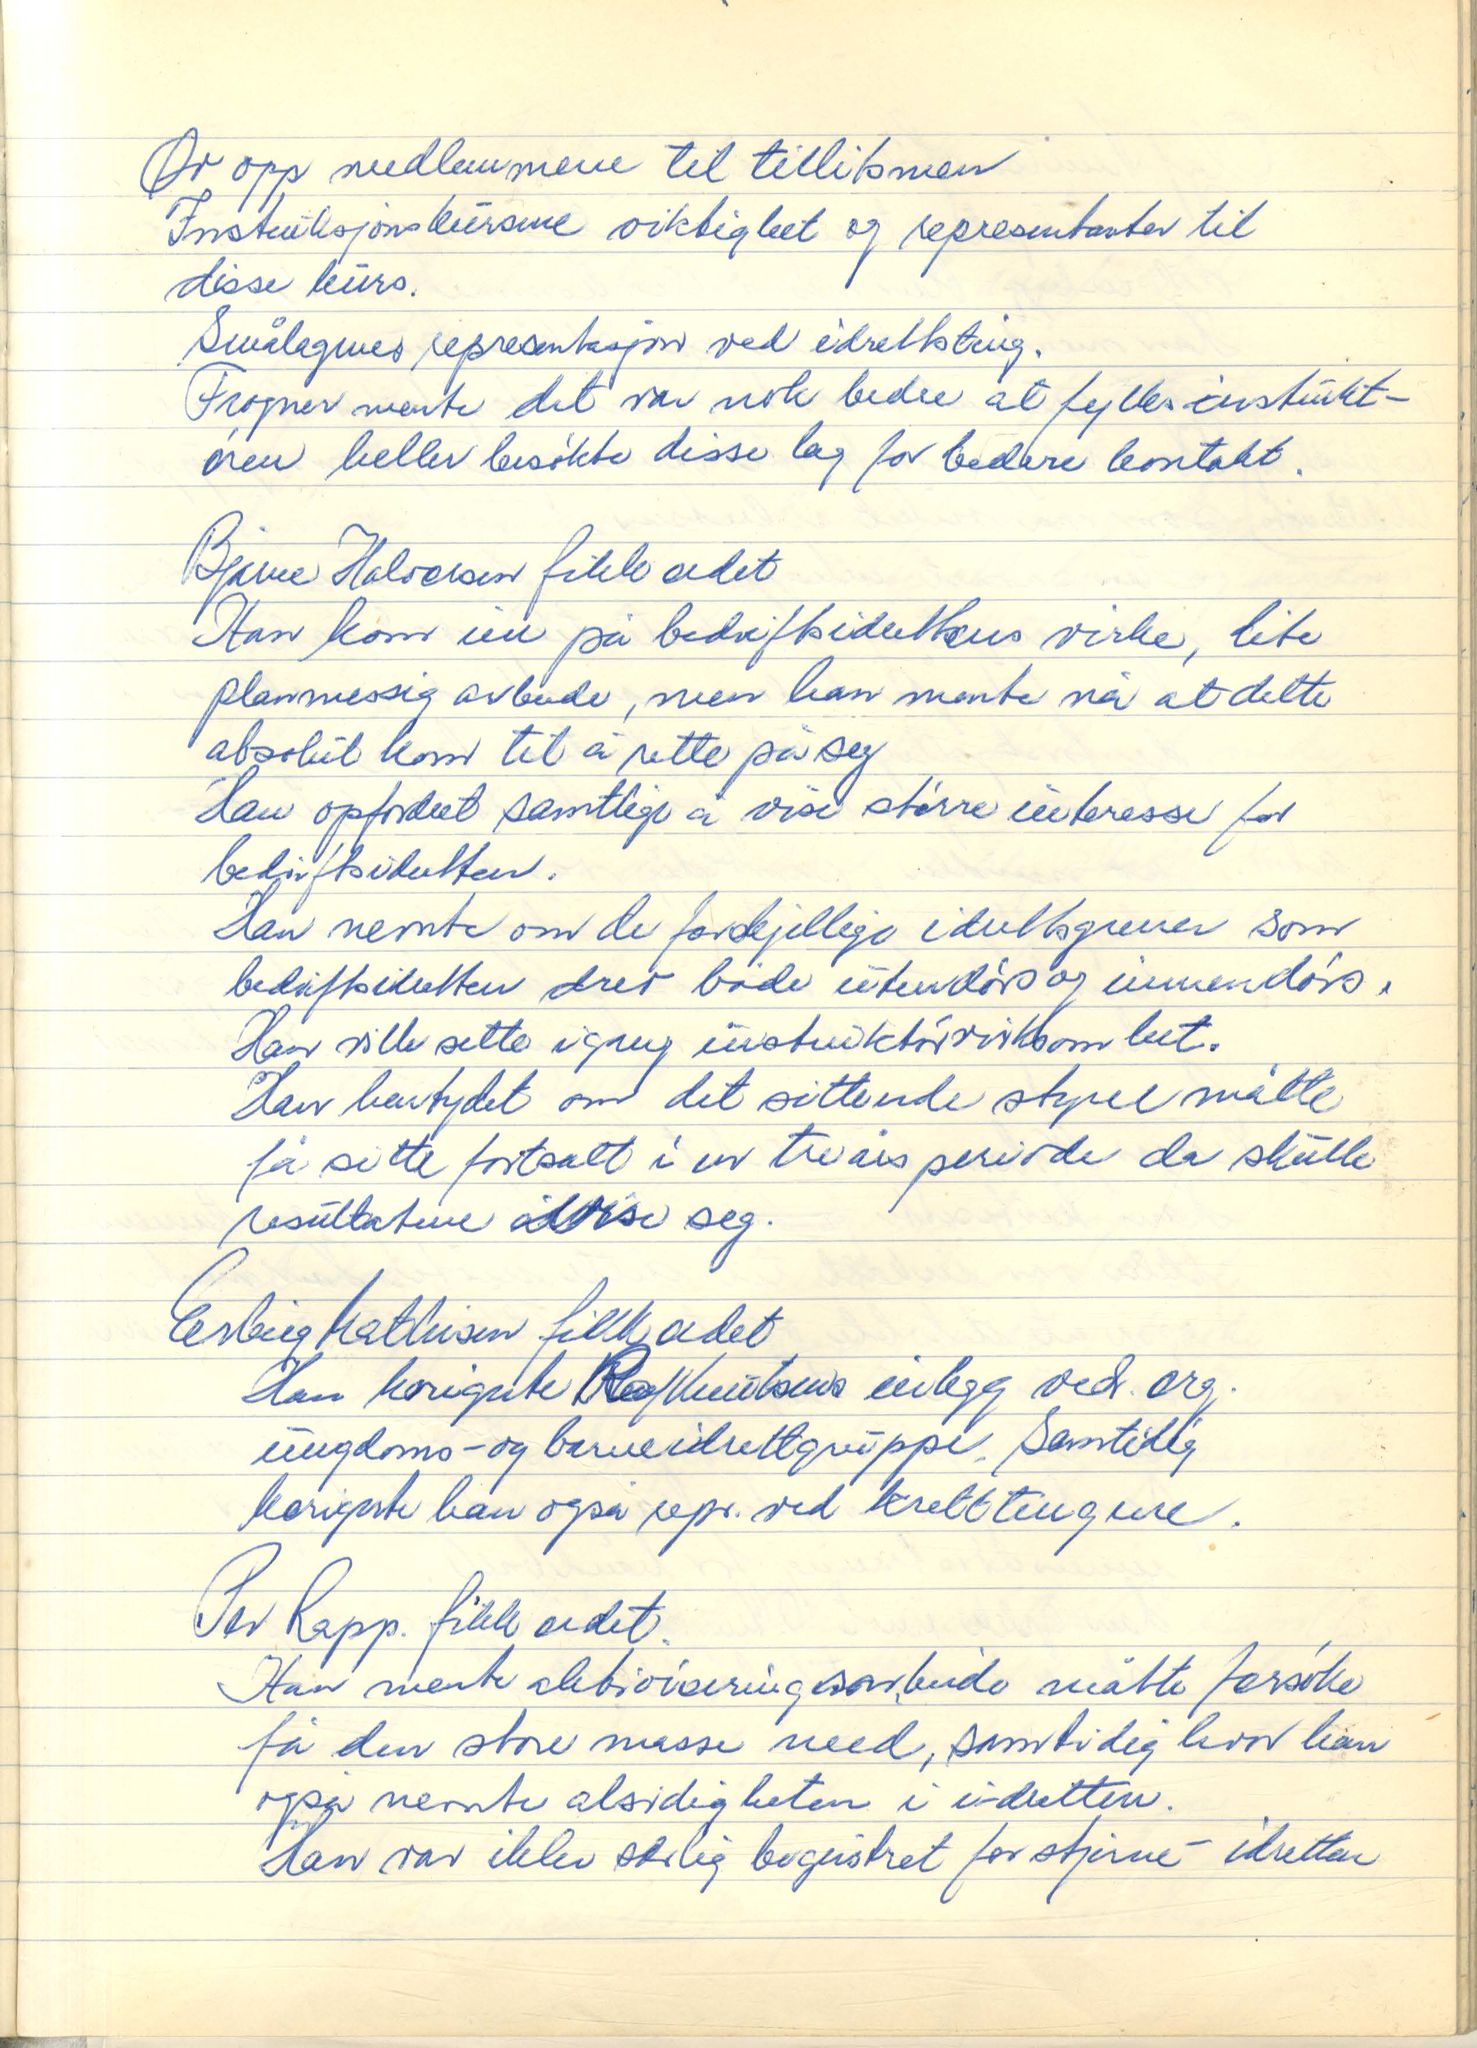 Øv opp medlemmene til tillitsmen
Instruksjonskursene viktighet og representanter til
disse kurs.
Smålagenes representasjon ved idrettsting.
Frogner mente det var nok bedre at fylkesinstrukt-
øren heller besøkte disse lag for bedere kontakt.
Bjarne Halvorsen fikk ordet
Han kom inn på bedriftsidrettens virke, lite
planmessig arbeide, men han mente nå at dette
absolut kom til å rette på seg
Han opfordret samtlige å vise større interesse for
bedriftsidretten.
Han nevnte om de forskjellige idrettsgrener som
bedriftsidretten drev både utendørs og innendørs.
Han ville sette igang instruktørvirksomhet.
Han hentydet om det sittende styre måtte
få sitte fortsatt i en treårs periode da skulle
resultatene vise seg.
Mathisen fikk ordet
Han korigerte Knutsens inlegg ved. org.
ungdoms- og barneidrettgruppe. Samtidig
korigerte han også repr. ved krettstingene.
Per Rapp. fikk ordet.
Han mente aktiviseringsarbeide måtte forsøke
få den store masse med, samtidig hvor han
også nevnte alsidigheten i idretten.
Han var ikke særlig begeistret for stjerne- idretten